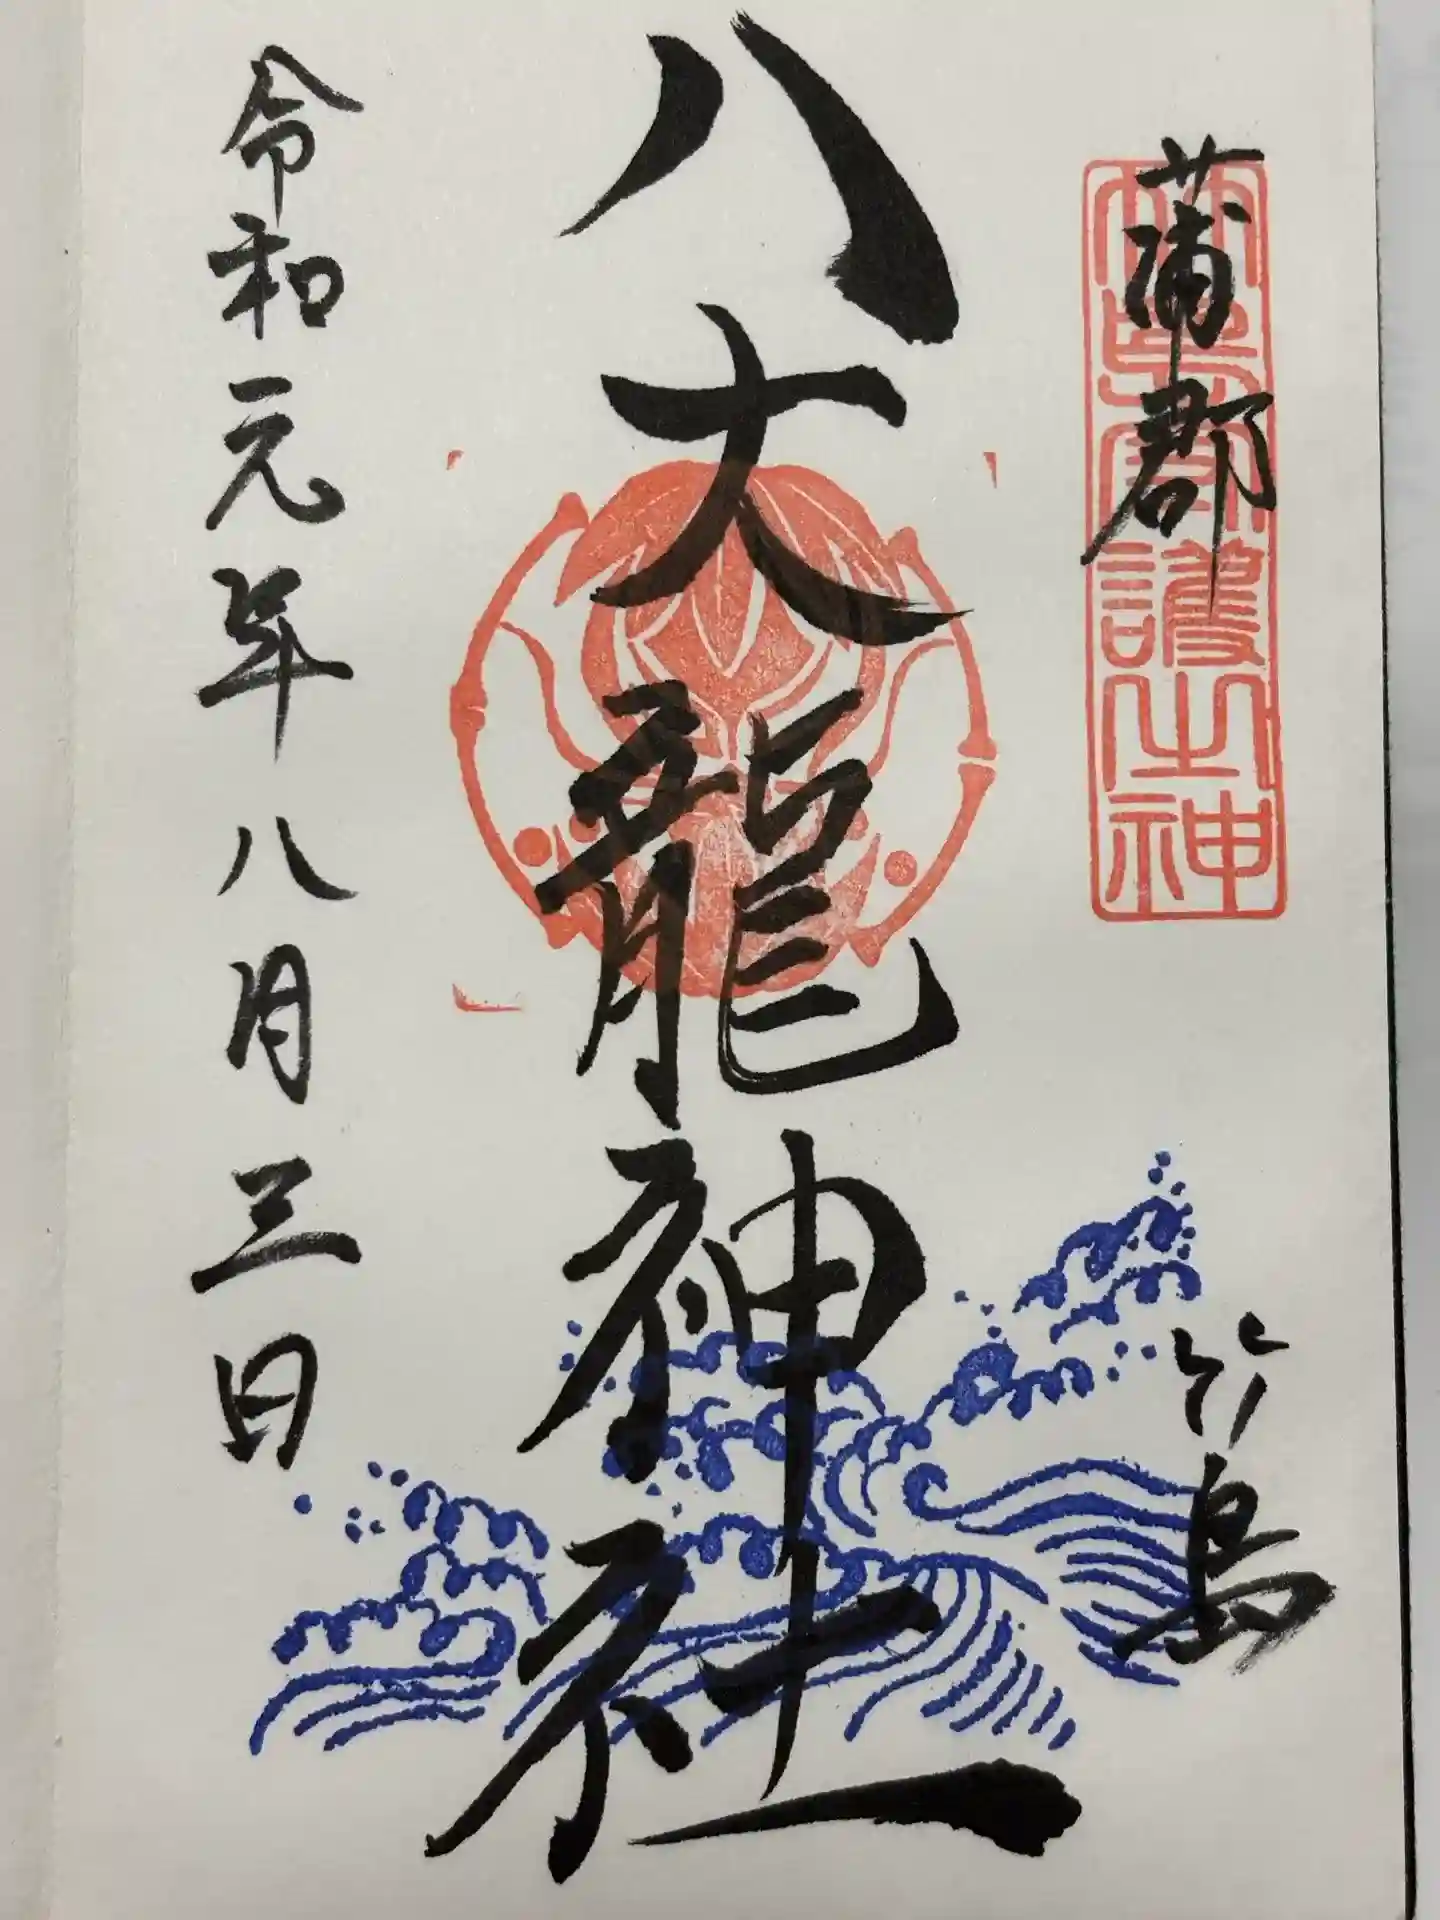 蒲郡
竹島
八大龍神社
令和元年八月三日
竹島守護之神